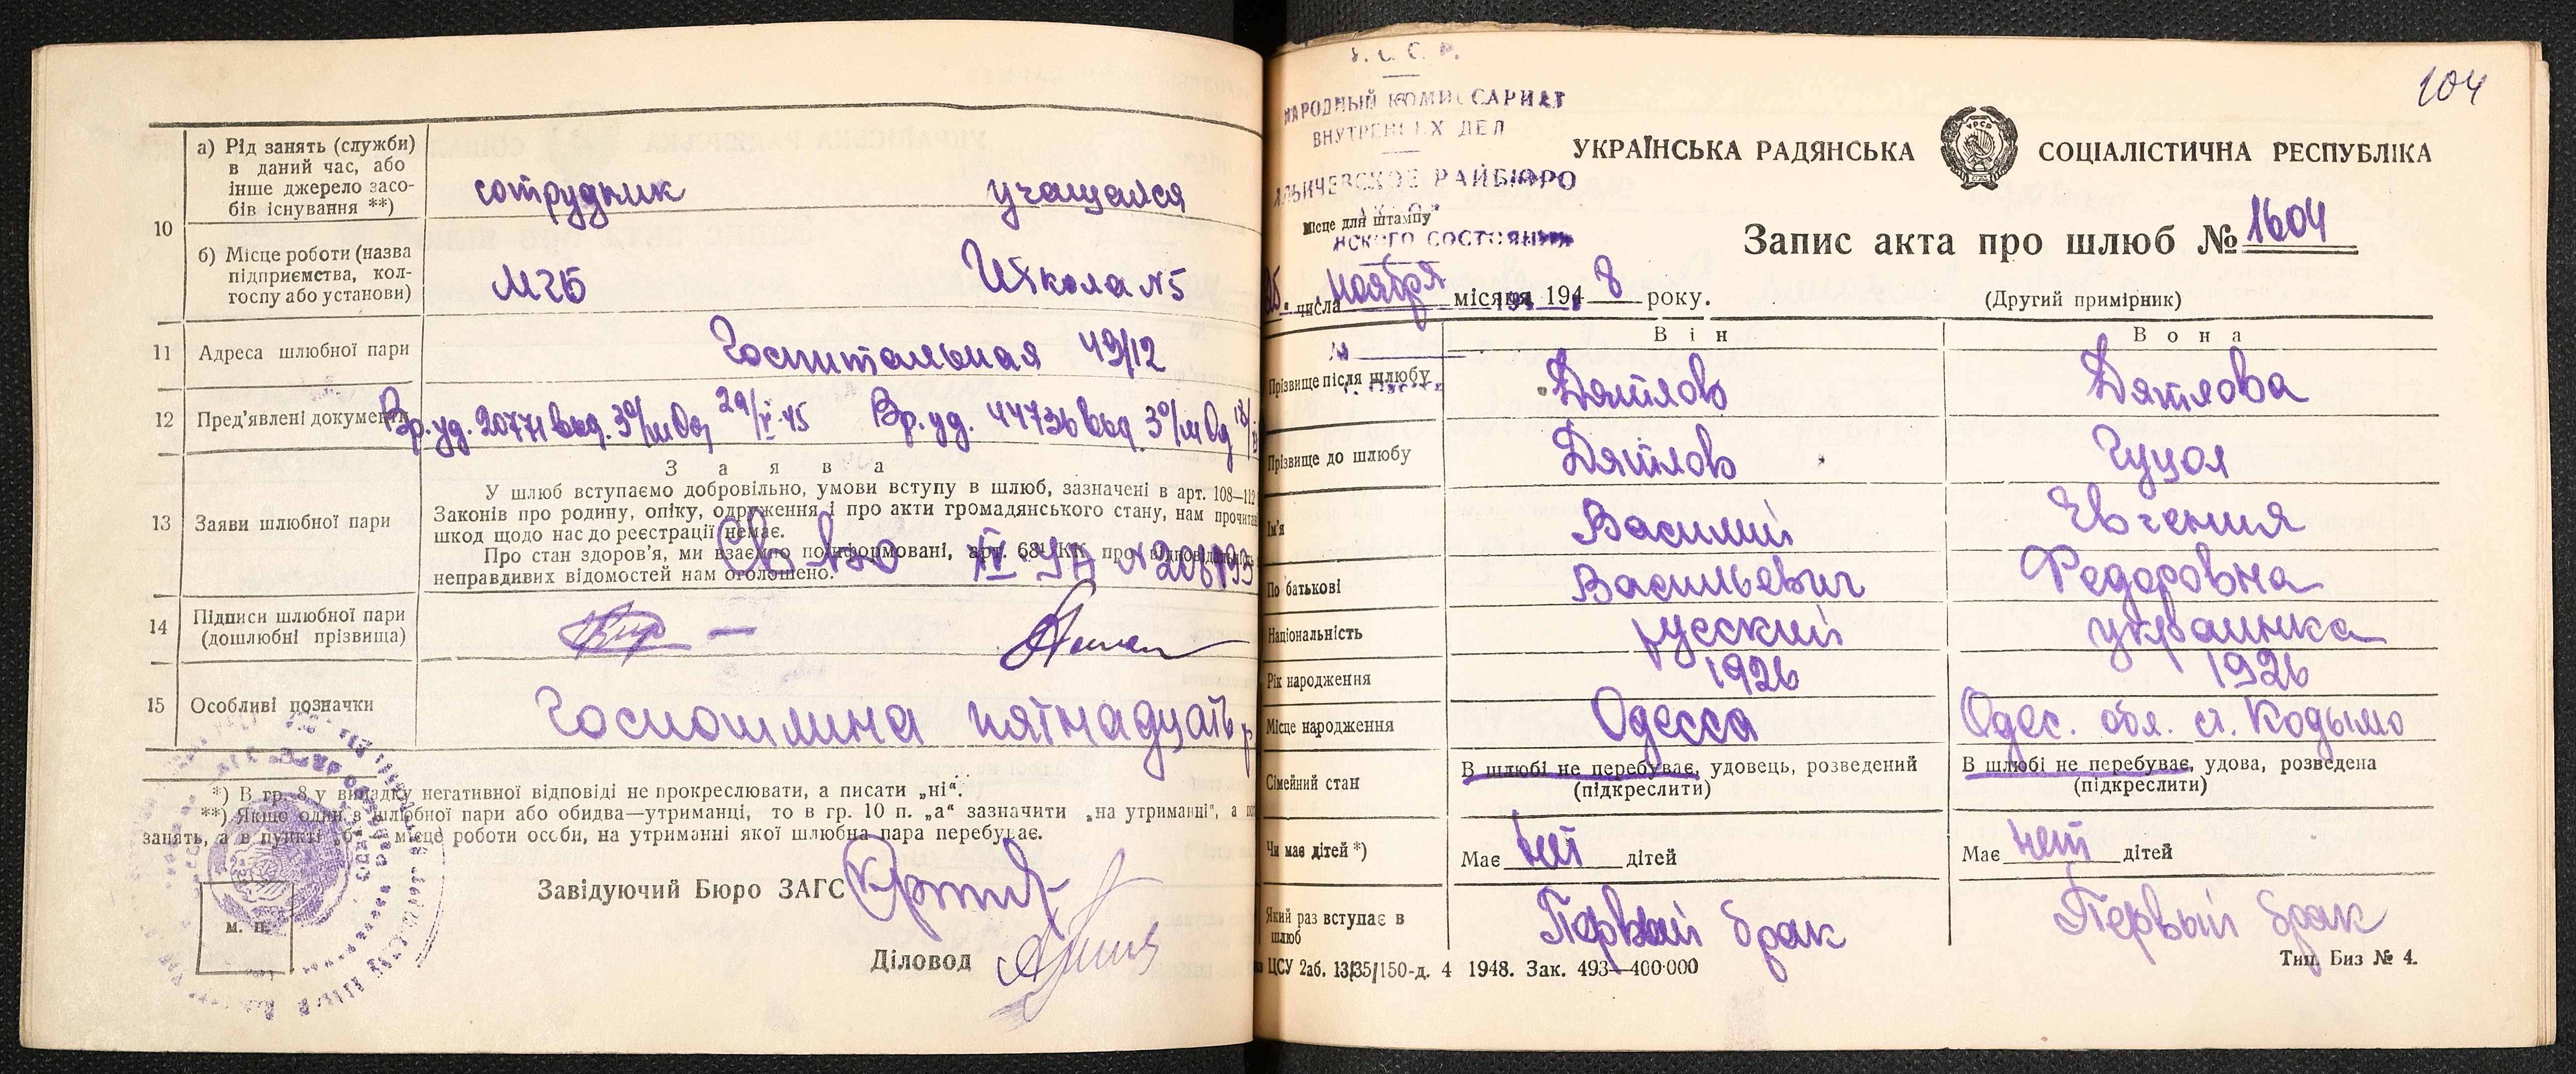 а) Рід занять (служби)
в даний час, або
інше джерело засо-
бів існування **)
сотрудник учащаяся
10
б) Місце роботи (назва
підприємства, кол-
госпу або установи)
МГБ Школа №5
11 Адреса шлюбної пари Госпитальная 49/12
12 Пред'явлені документи Вр. уд. 20771 выд. 3 о/м Од 29/V-45 Вр. уд. 44736 выд. 3 о/м Од
З а я в а
13 Заяви шлюбної пари
У шлюб вступаємо добровільно, умови вступу в шлюб, зазначені в арт. 108—112
Законів про родину, опіку, одруження і про акти громадянського стану, нам прочитані
шкод щодо нас до реєстрації немає.
Про стан здоров'я, ми взаємно поінформовані, арт. 68¹ КК про
неправдивих відомостей нам оголошено.
Св-во IV УБ №
14 Підписи шлюбної пари
(дошлюбні прізвища)
15 Особливі позначки Госпошлина пятнадцать р
*) В гр. 8 у випадку негативної відповіді не прокреслювати, а писати „ні“.
**) Якщо один з шлюбної пари або обидва—утриманці, то в гр. 10 п. „а“ зазначити „на утриманні“, а
занять, а в пункті „б“ місце роботи особи, на утриманні якої шлюбна пара перебуває.
Завідуючий Бюро ЗАГС
м. п.
Діловод
104
У. С. С. Р.
НАРОДНЫЙ КОМИССАРИАТ
ВНУТРЕННИХ ДЕЛ
ИЛЬИЧЕВСКОЕ РАЙБЮРО
Місце для штампу
НСКОГО СОСТОЯНИЯ
УКРАЇНСЬКА РАДЯНСЬКА СОЦІАЛІСТИЧНА РЕСПУБЛІКА
Запис акта про шлюб № 1604
25. числа ноября місяця 1948 року. (Другий примірник)
Він Вона
Прізвище після шлюбу Дятлов Дятлова
Прізвище до шлюбу Дятлов Гуцол
Ім'я Василий Евгения
По батькові Васильевич Федоровна
Національність русский украинка
Рік народження 1926 1926
Місце народження Одесса Одес. обл. ст. Кодымо
Сімейний стан В шлюбі не перебуває, удовець, розведений В шлюбі не перебуває, удова, розведена
(підкреслити) (підкреслити)
Чи має дітей *) Має нет дітей Має нет дітей
Який раз вступає в
шлюб
Первый брак Первый брак
ЦСУ 2аб. 13/35/150-д. 4 1948. Зак. 493—400·000 Тип. Биз № 4.